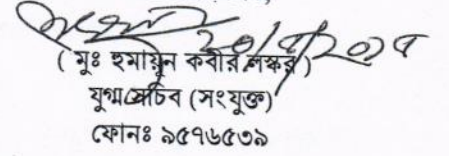 ২০/৭/২০১৭
( মুঃ হুমায়ুন কবীর লস্কর )
যুগ্মসচিব (সংযুক্ত)
ফোনঃ ৯৫৭৬৫৩৯